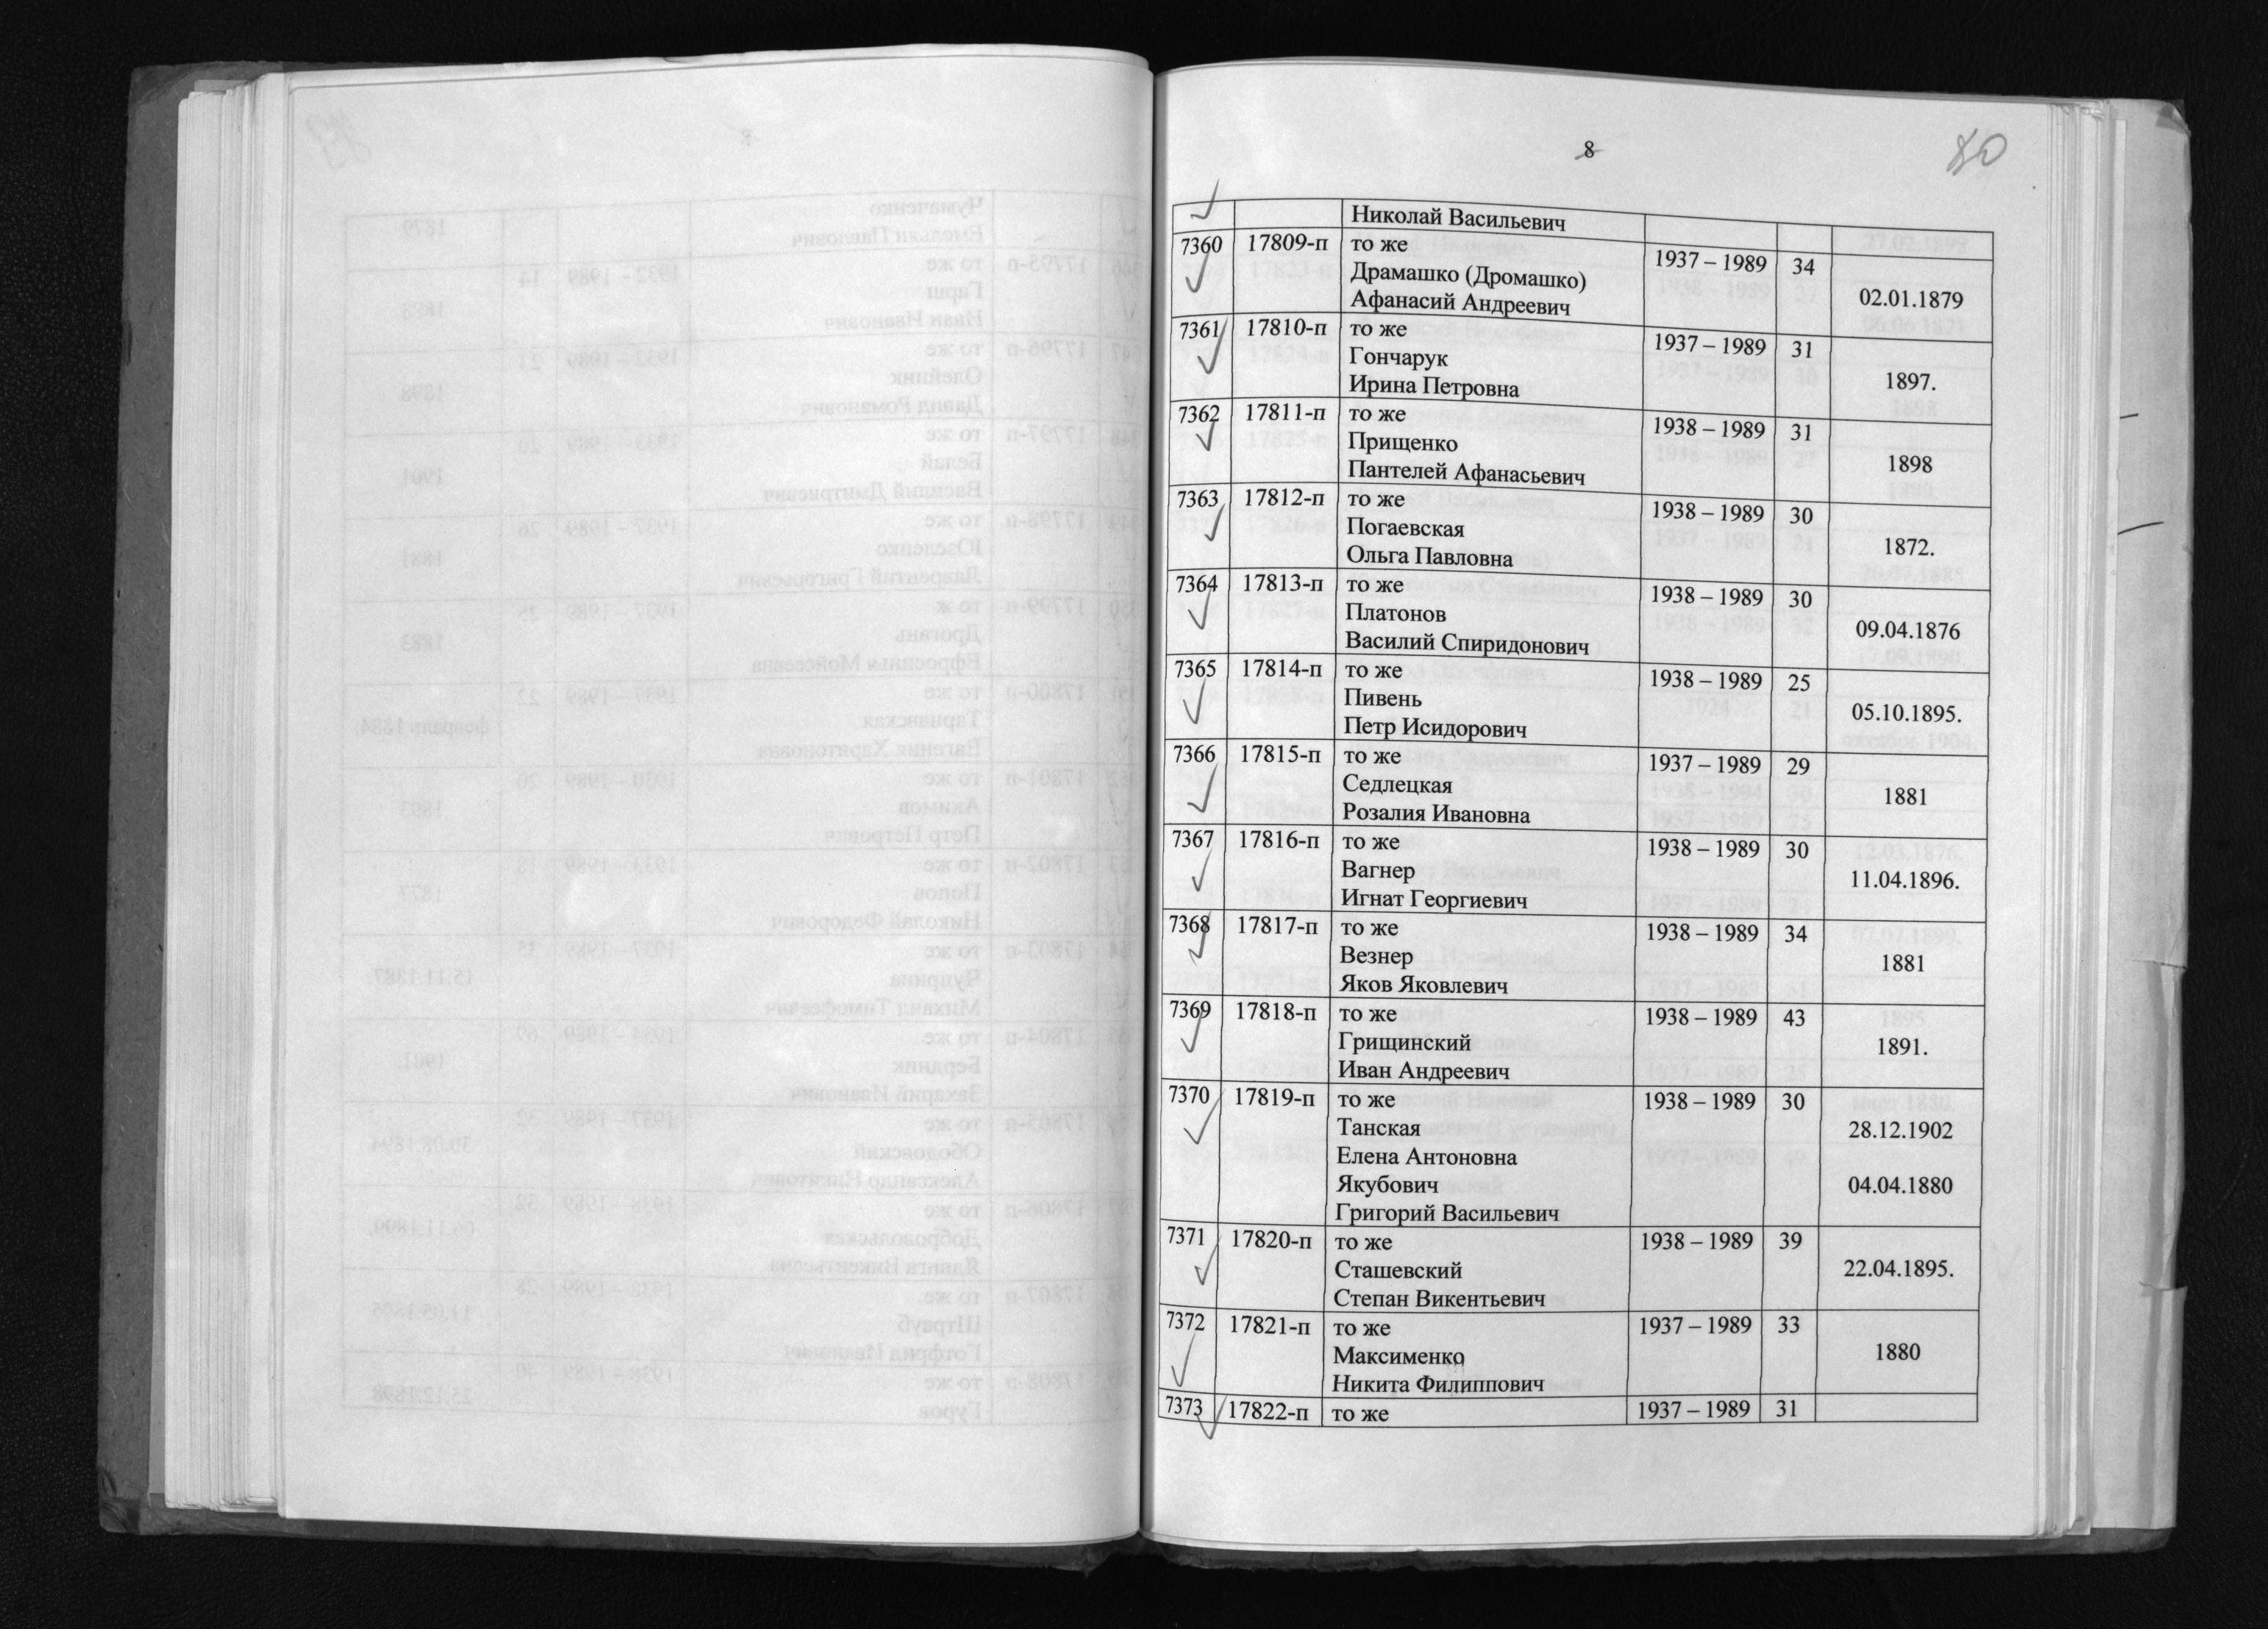 8
80
Николай Васильевич
7360 17809-п то же 1937 – 1989 34
Драмашко (Дромашко)
Афанасий Андреевич 02.01.1879
7361 17810-п то же 1937 – 1989 31
Гончарук
Ирина Петровна 1897.
7362 17811-п то же 1938 – 1989 31
Прищенко
Пантелей Афанасьевич 1898
7363 17812-п то же 1938 – 1989 30
Погаевская
Ольга Павловна 1872.
7364 17813-п то же 1938 – 1989 30
Платонов
Василий Спиридонович 09.04.1876
7365 17814-п то же 1938 – 1989 25
Пивень
Петр Исидорович 05.10.1895.
7366 17815-п то же 1937 – 1989 29
Седлецкая
Розалия Ивановна 1881
7367 17816-п то же 1938 – 1989 30
Вагнер
Игнат Георгиевич 11.04.1896.
7368 17817-п то же 1938 – 1989 34
Везнер 1881
Яков Яковлевич
7369 17818-п то же 1938 – 1989 43
Грищинский 1891.
Иван Андреевич
7370 17819-п то же 1938 – 1989 30
Танская 28.12.1902
Елена Антоновна
Якубович 04.04.1880
Григорий Васильевич
7371 17820-п то же 1938 – 1989 39
Сташевский 22.04.1895.
Степан Викентьевич
7372 17821-п то же 1937 – 1989 33
Максименко 1880
Никита Филиппович
7373 17822-п то же 1937 – 1989 31